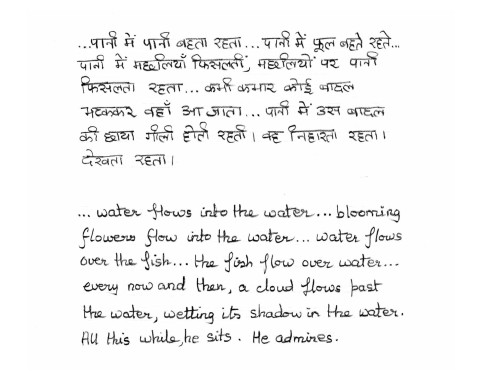 ...पानी में पानी बहता रहता... पानी में फूल बहते रहते...
पानी में मछलियाँ फिसलतीं, मछलियों पर पानी
फिसलता रहता... कभी कभार कोई बादल
भटककर वहाँ आ जाता... पानी में उस बादल
की छाया गीली होती रहती। वह निहारता रहता।
देखता रहता।
... water flows into the water... blooming
flowers flow into the water... water flows
over the fish... the fish flow over water...
every now and then, a cloud flows past
the water, wetting its shadow in the water.
All this while, he sits. He admires.